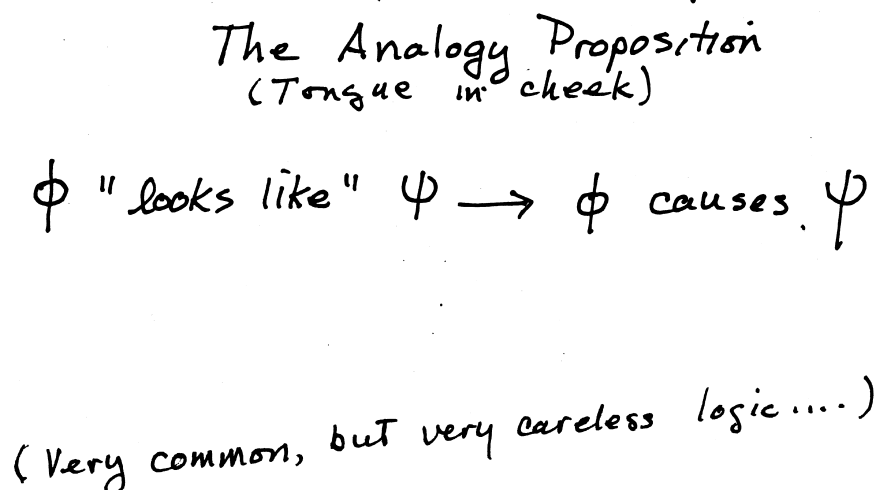 The Analogy Proposition
(Tongue in cheek)
φ "looks like" ψ → φ causes ψ
(Very common, but very careless logic....)